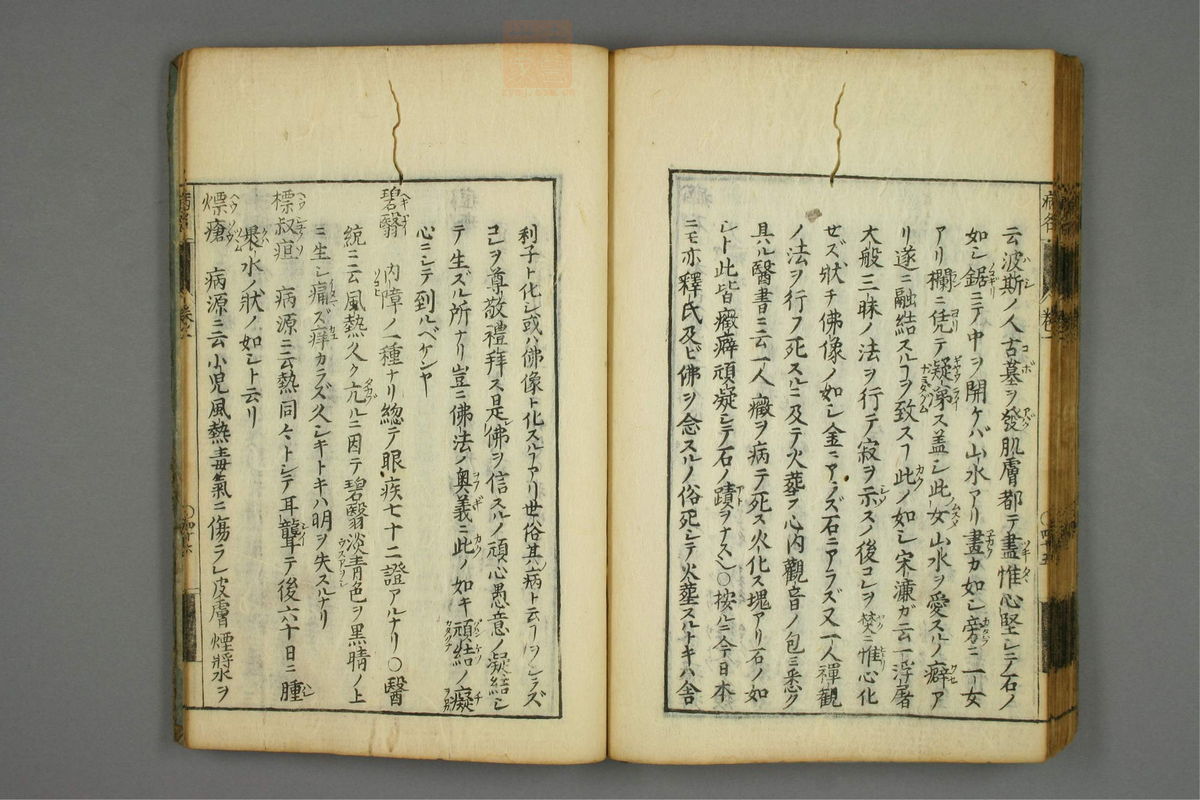 云波斯ノ人古墓ヲ發肌膚都テ盡惟心堅シテ石ノ
如シ鋸ニテ中ヲ開ケバ山水アリ畫カ如シ旁ニ一女
アリ欄ニ凭テ凝第ス蓋シ此女山水ヲ愛スルノ癖ア
リ遂ニ融結スルヿヲ致スヿ此ノ如シ宋濂ガ云一浮屠
大般三昧ノ法ヲ行テ寂ヲ示スノ後コレヲ焚ニ惟心化
セズ狀チ佛像ノ如シ金ニアラズ石ニアラズ又一人禪觀
ノ法ヲ行フ死スルニ及テ火葬ヲ心内觀音ノ包ミ悉ク
具ハル醫書ニ云一人癥ヲ病テ死ス火化ス塊アリ石ノ如
シト此皆癥癖頑凝シテ石ノ蹟ヲナス〇按ルニ今日本
ニモ亦釋氏及ビ佛ヲ念スルノ俗死シテ火葬スルトキハ舎
利子ト化シ或ハ佛像ト化スルヿアリ世俗其病ト云ヿヲシラズ
コレヲ尊敬禮拜ス是佛ヲ信スルノ頑心愚意ノ凝結シ
テ生ズル所ナリ豈ニ佛法ノ奥義ニ此ノ如キ頑結ノ癡
心ニシテ到ルベケンヤ
碧翳 内障ノ一種ナリ惣テ眼疾七十二證アルナリ〇醫
統ニ云風熱久ク亢ルニ因テ碧翳淡青色ヲ黒睛ノ上
ニ生シ痛ズ痒カラズ久シキトキハ明ヲ失スルナリ
標叔疽 病源ニ云熱同々トシテ耳聾テ後六十日ニ腫
水ノ狀ノ如シト云リ
熛瘡 病源ニ云小児風熱毒氣ニ傷ラレ皮膚煙漿ヲ